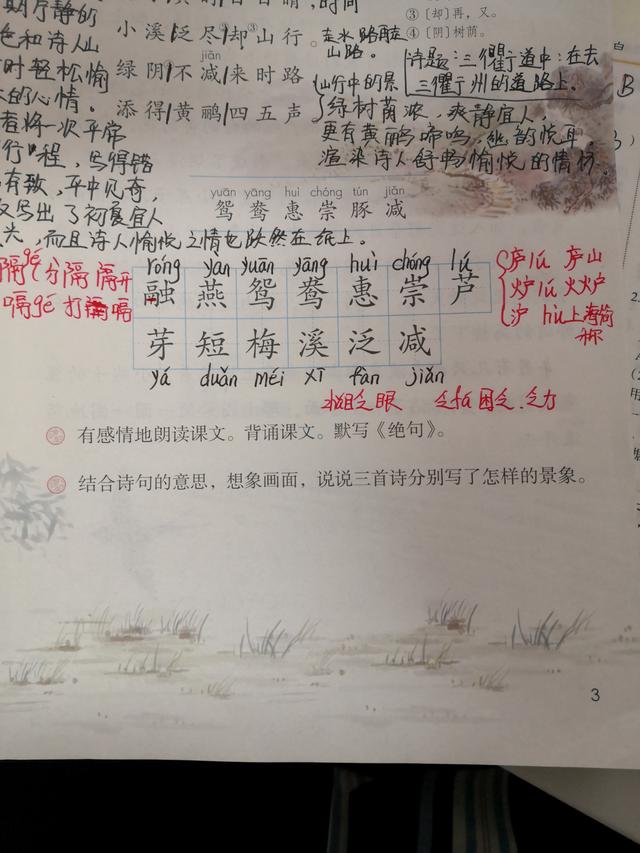 时间
③〔却〕再，又。
④〔阴〕树荫。
小溪泛尽却③山行。
jiǎn
绿阴不减来时路
添得黄鹂四五声
色和诗人山
时轻松愉
的心情。
者将一次平常
行程，写得错
有致，平中见奇，
写出了初夏宜人
光，而且诗人愉悦之情也跃然在纸上。
走水路再走
山路。
诗题：三衢道中：在去
三衢州的道路上。
山行中的景
绿树荫浓，爽静宜人，
更有黄鹂啼鸣，悦耳，
渲染诗人舒畅愉悦的情
yuān yāng huì chóng tún jiǎn
鸳鸯惠崇豚减
隔gé分隔 隔开
嗝gé打嗝
róng yàn yuān yāng huì chóng lú
融燕鸳鸯惠崇芦
芽短梅溪泛减
yá duǎn méi xī fàn jiǎn
庐lú 庐山
炉lú 火炉
沪 hù上海简
称
眨眼 乏fá困乏.乏力
有感情地朗读课文。背诵课文。默写《绝句》。
结合诗句的意思，想象画面，说说三首诗分别写了怎样的景象。
3
B
2.